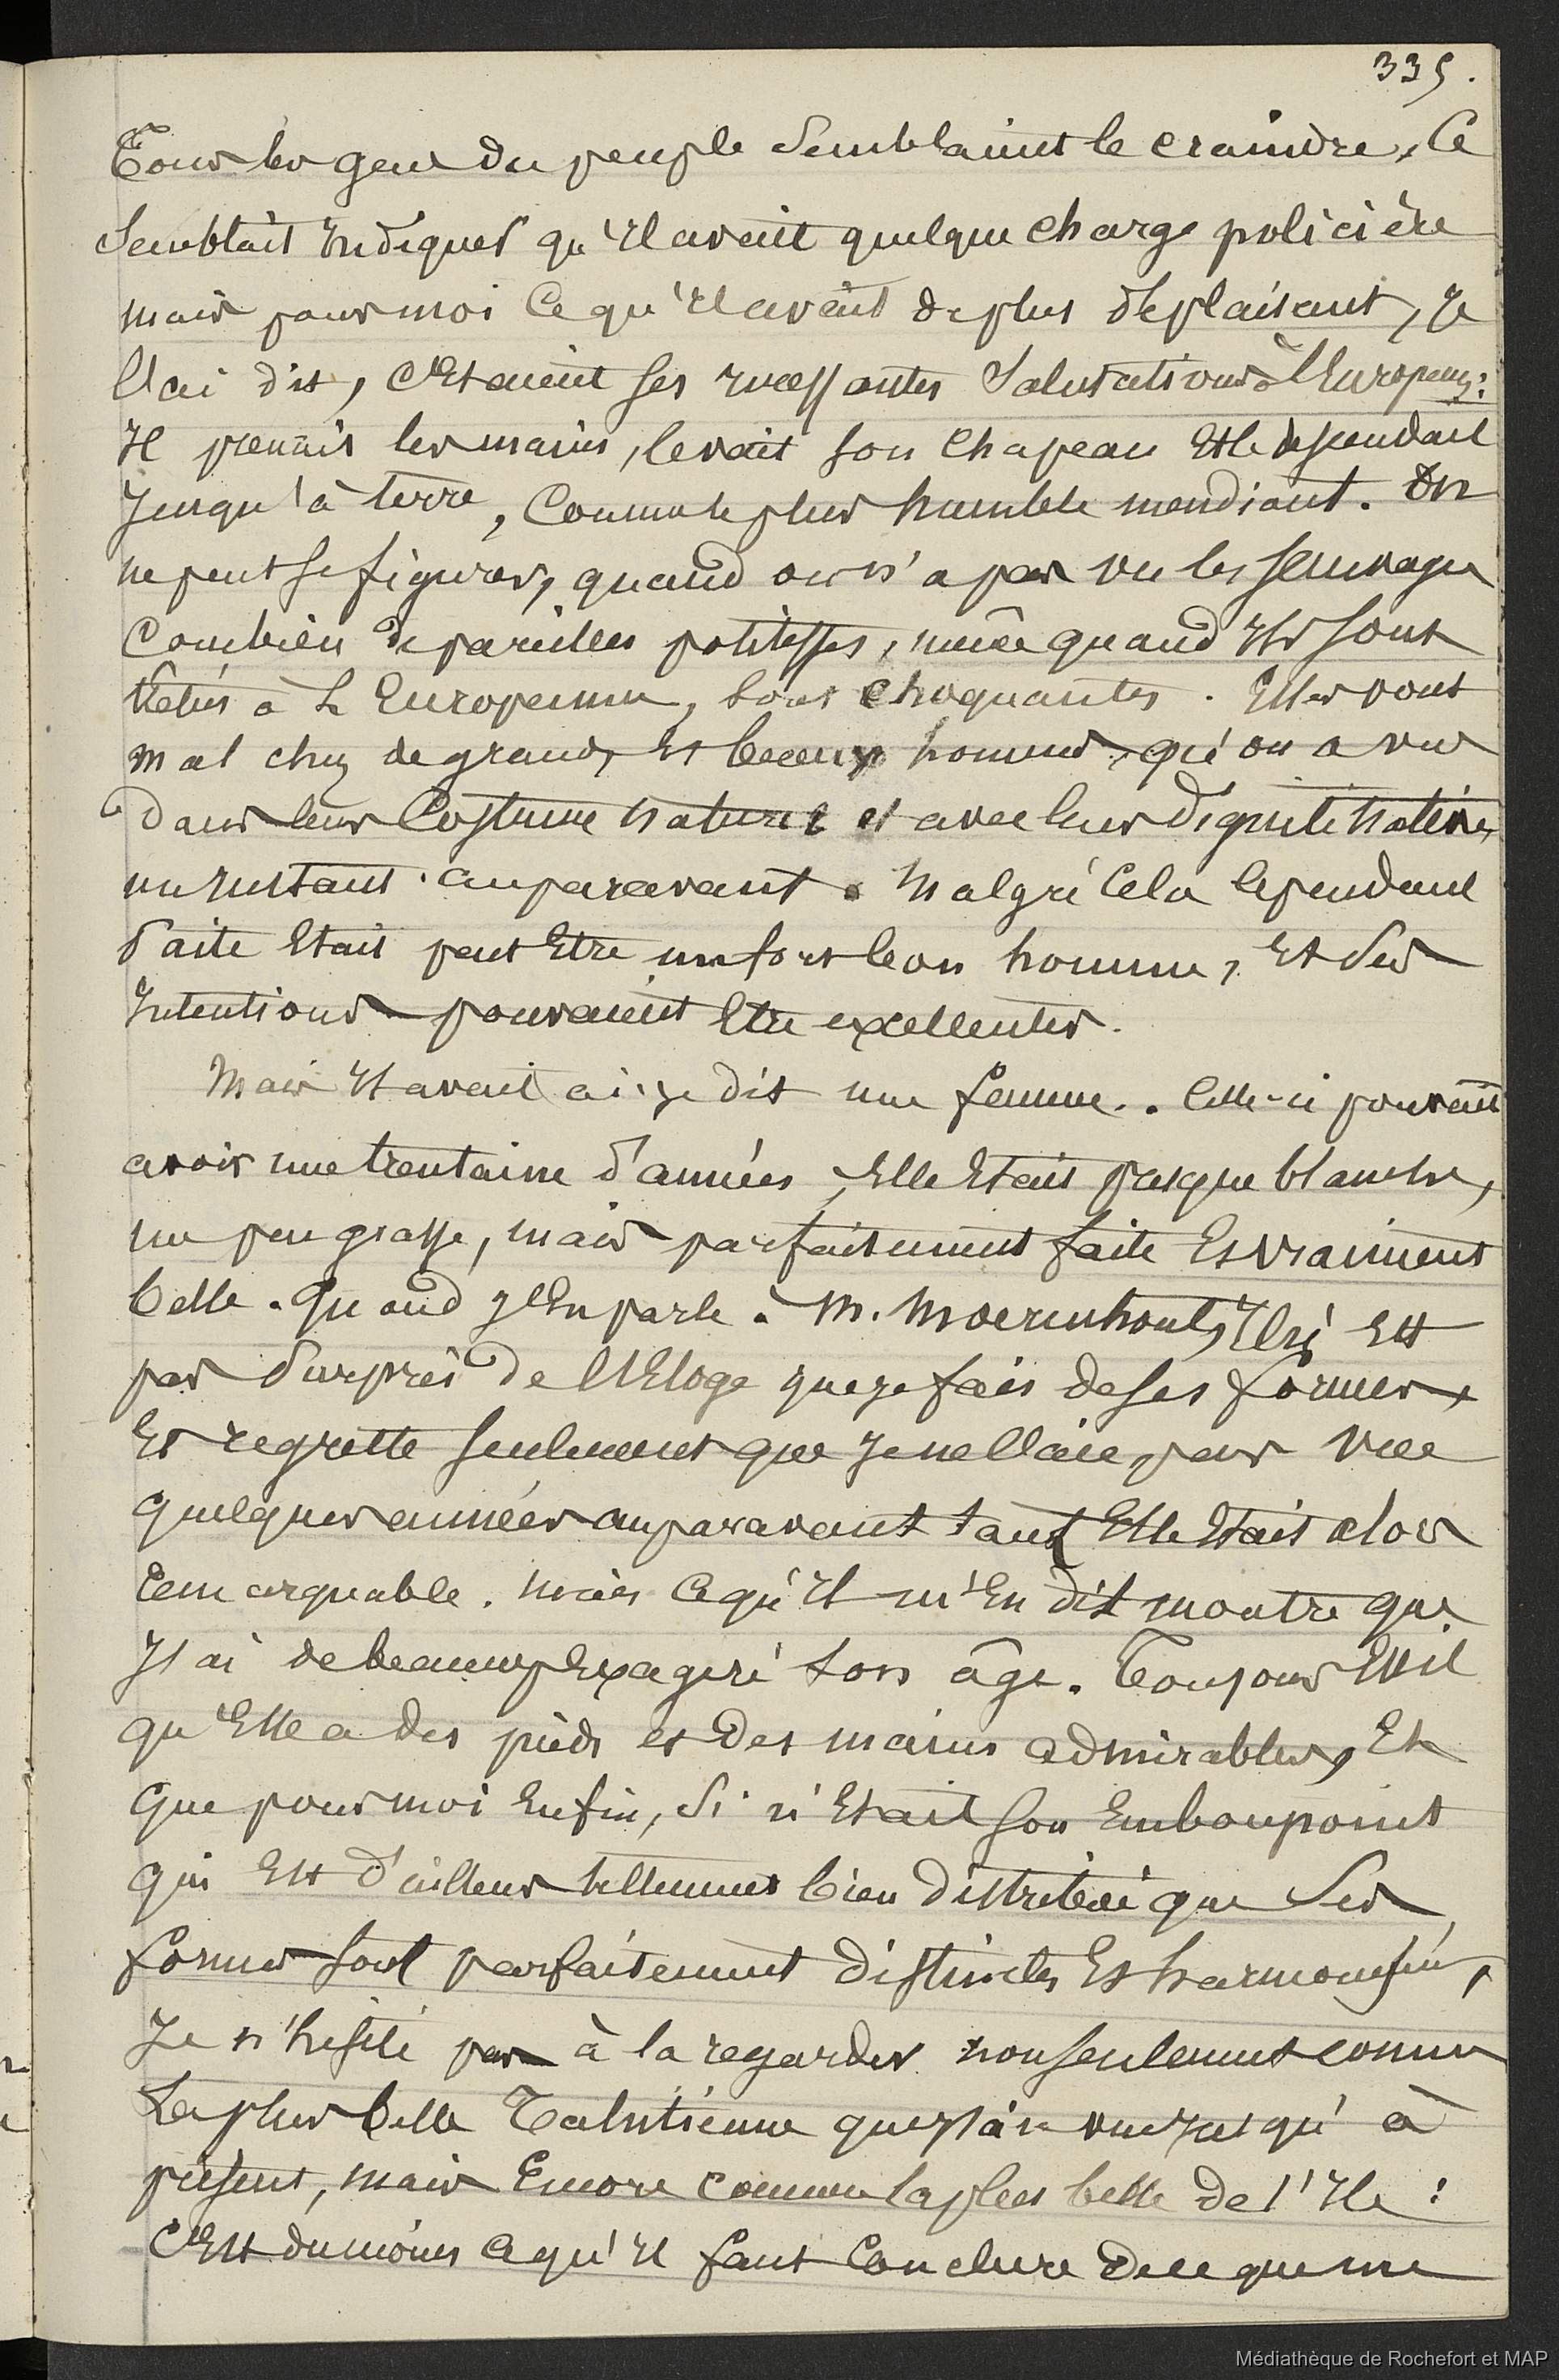 335.
Tous les gens du peuple semblaient le craindre, ce
semblait indiquer qu'il avait quelque charge policière
mais pour moi ce qu'il avait de plus déplaisant, je
l'ai dit, c'étaient ses incessantes salutations à l'Européenne:
Il prenait les mains, levait son chapeau et le descendait
jusqu'à terre, comme le plus humble mendiant. On
ne peut se figurer, quand on n'a pas vu les sauvages
combien de pareilles politesses, même quand ils sont
vêtus à L'Européenne, sont choquantes. Elles vont
mal chez de grands et beaux hommes, qu'on a vus
dans leur costume naturel et avec leur dignité native,
un instant auparavant. Malgré cela cependant
Taite était peut être un fort bon homme, et ses
intentions pouvaient être excellentes.
Mais il avait ai-je dit une femme.. Celle-ci pouvait
avoir une trentaine d'années, elle était presque blanche,
un peu grasse, mais parfaitement faite et vraiment
belle. Quand j'en parle à M. Moerenhout, il n'est
pas surpris de l'éloge que je fais de ses formes,
et regrette seulement que je ne l'aie pas vue
quelques années auparavant tant elle était alors
remarquable. mais ce qu'il m'en dit montre que
j'ai de beaucoup exagéré son âge. Toujours est il
qu'elle a des pieds et des mains admirables, et
que pour moi enfin, si n'était son embonpoint
qui est d'ailleurs tellement bien distribué que ses
formes sont parfaitement distinctes et harmonieuses,
je n'hésite pas à la regarder non seulement comme
la plus belle Tahitienne que j'aie vue jusqu'à
présent, mais encore comme la plus belle de l'île:
c'est du moins ce qu'il faut conclure de ce que me
Médiathèque de Rochefort et MAP